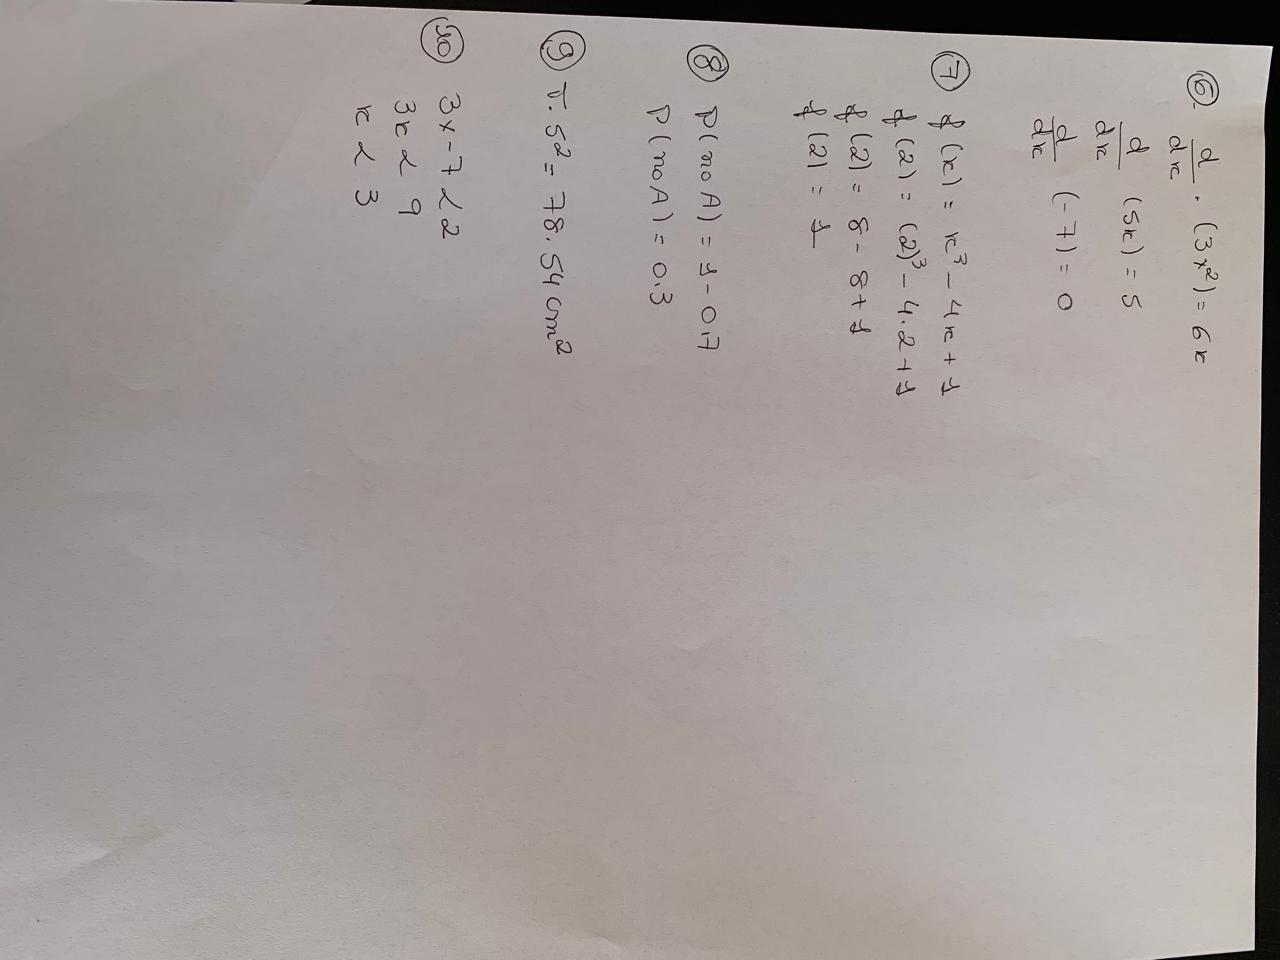 6. d/dx . (3x²) = 6x
d/dx (5x) = 5
d/dx (-7) = 0
7 f(x) = x³ - 4x + 1
f(2) = (2)³ - 4.2 + 1
f(2) = 8 - 8 + 1
f(2) = 1
8 P(no A) = 1 - 0.7
P(no A) = 0.3
9 π. 5² = 78.54 cm²
10 3x - 7 < 2
3x < 9
x < 3